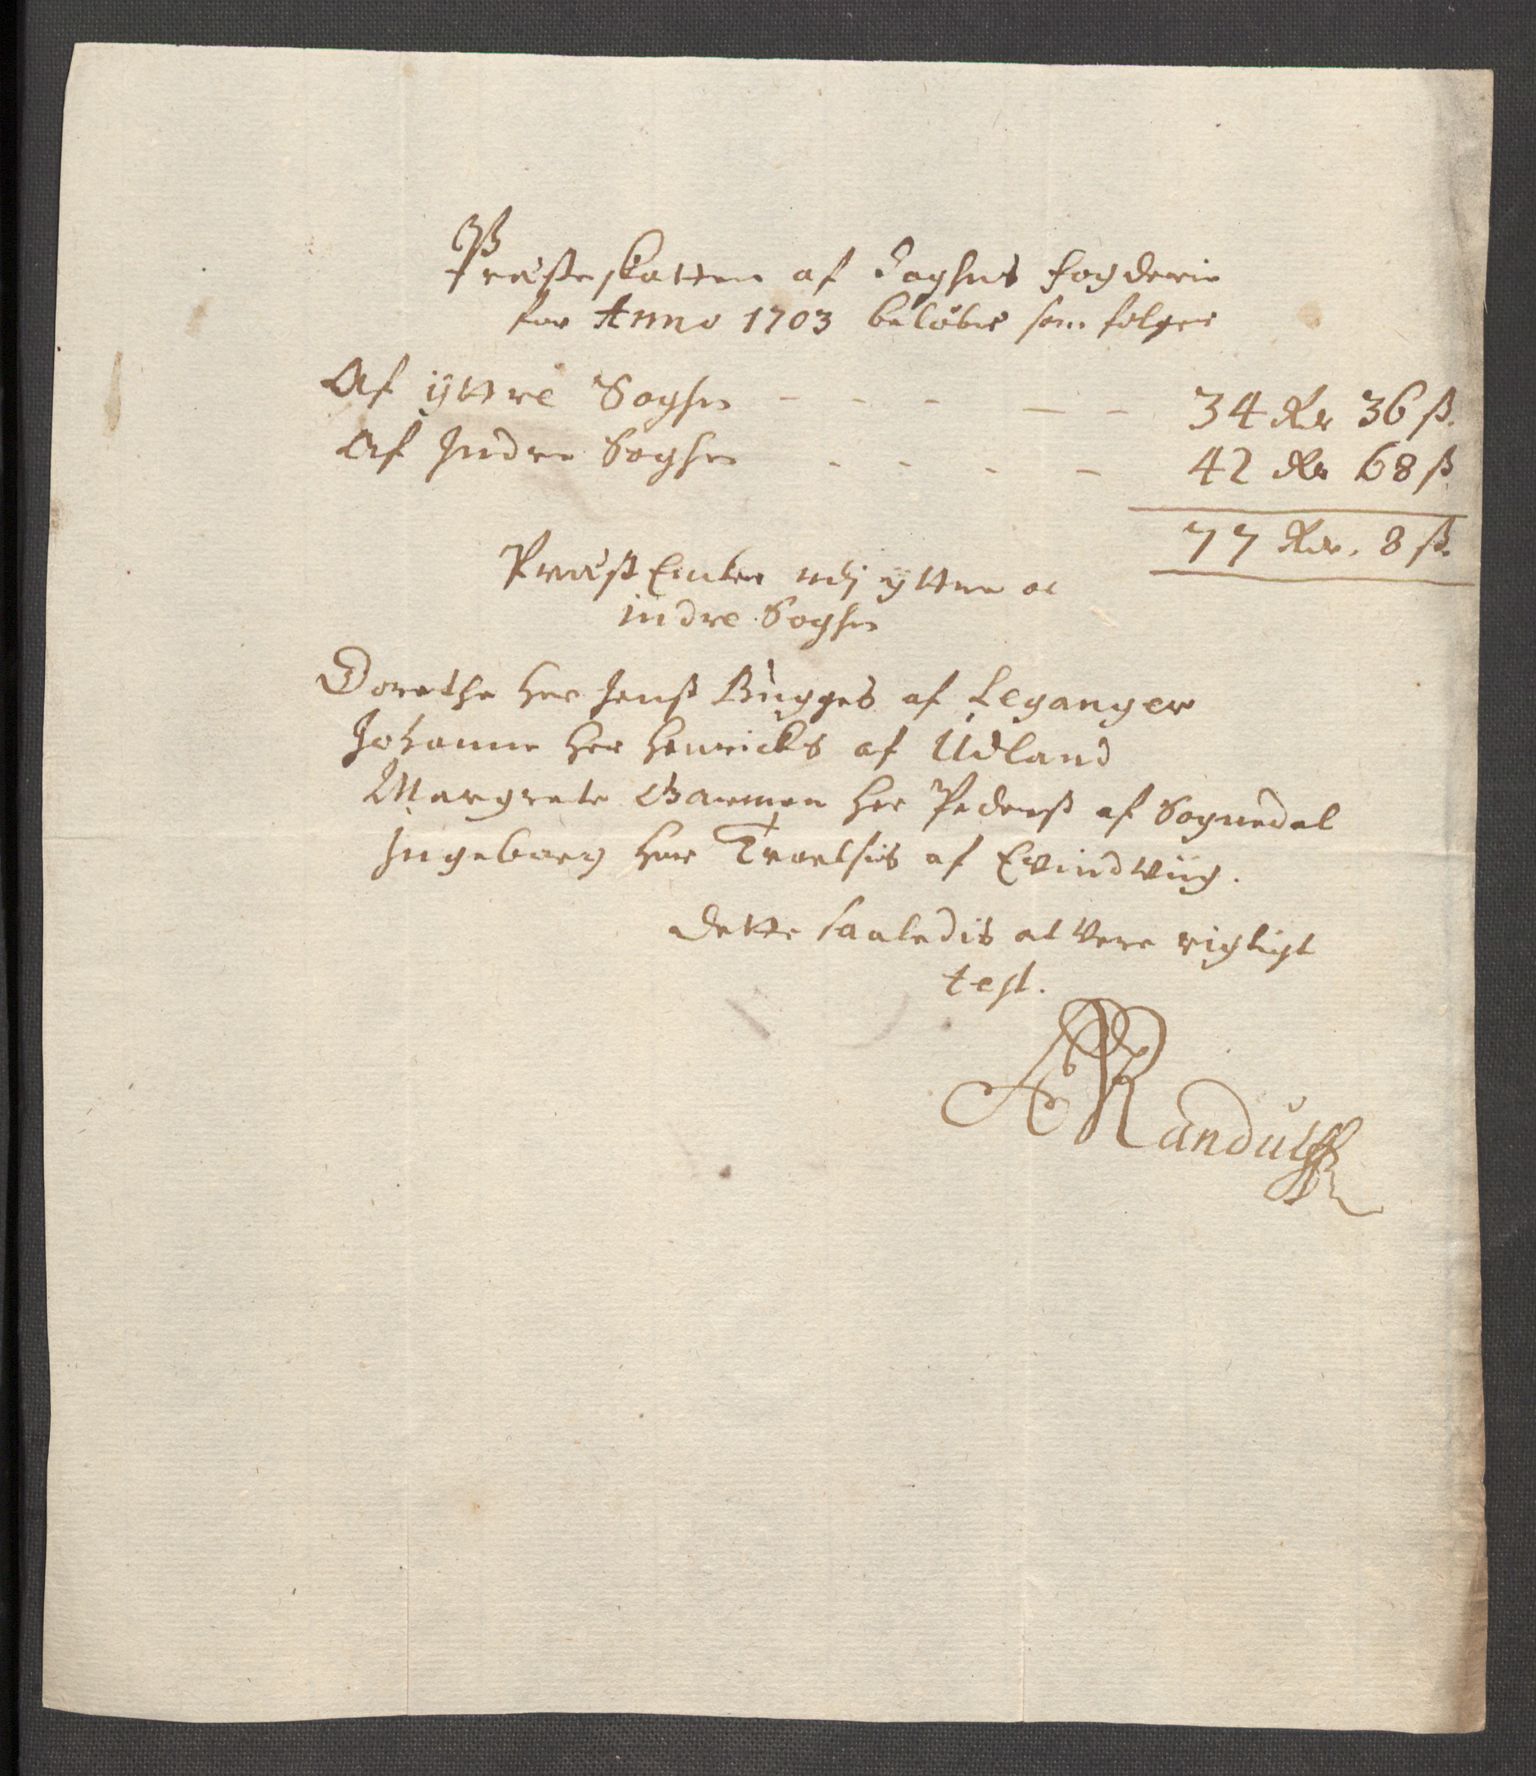 Præsteskatten af Soghns fogderie
for Anno 1703 beløber som følger
Af ÿttre Soghn - - - - - 34 Rdr 36 ß.
Af Indre Soghn - - - - 42 Rdr 68 ß
77 Rdr. 8 ß.
Præst Encker udj ÿttre oc
indre Soghn
Dorethe her Jenß Bugges af Leganger
Johanne her Henricks af Udland
Margrete Garman her Pederß af Sognedal
Ingeborg her Troelsis af Evindviig.
Dette saaledis at vere rigtigt
test.
A Randulff